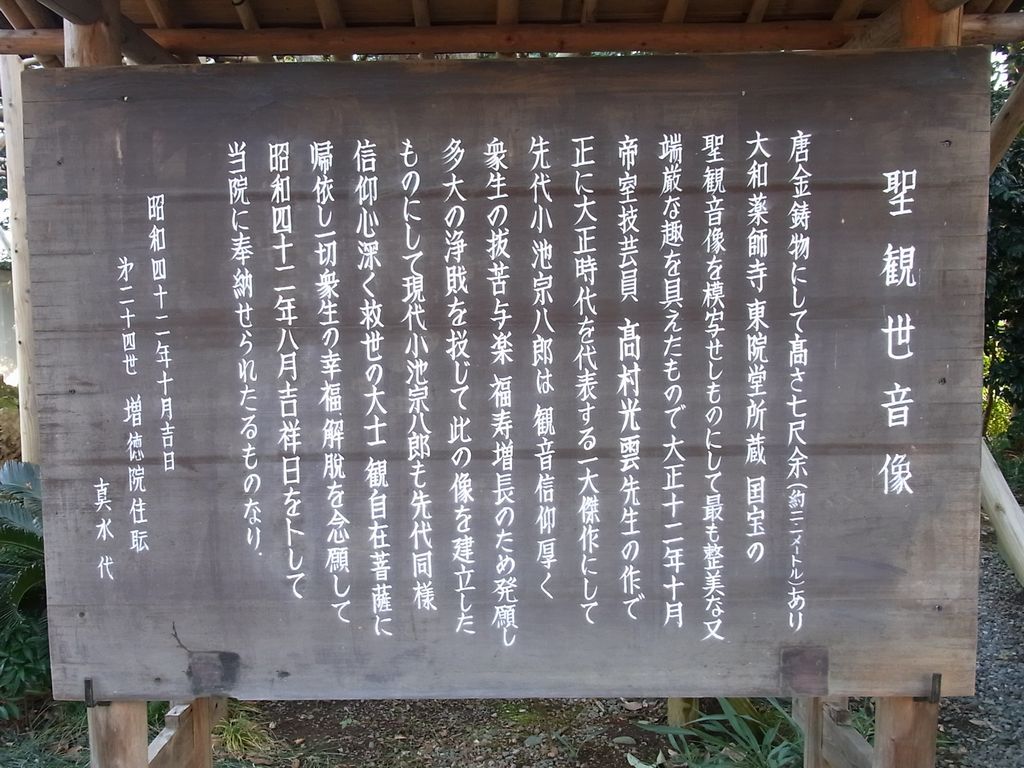 聖観世音像
唐金鋳物にして高さ七尺余(約二、二メートル)あり
大和薬師寺東院堂所蔵 国宝の
聖観音像を模写せしものにして最も整美な又
端厳な趣を具えたもので大正十二年十月
帝室技芸員 高村光雲先生の作で
正に大正時代を代表する一大傑作にして
先代小池宗八郎は観音信仰厚く
衆生の抜苦与楽 福寿増長のため発願し
多大の浄戝を投じて此の像を建立した
ものにして現代小池宗八郎も先代同様
信仰心深く救世の大士 観自在菩薩に
帰依し一切衆生の幸福、解脱を念願して
昭和四十二年八月吉祥日を卜して
当院に奉納せられたるものなり.
昭和四十二年十月吉日
第二十四世 増徳院住職
真水 代